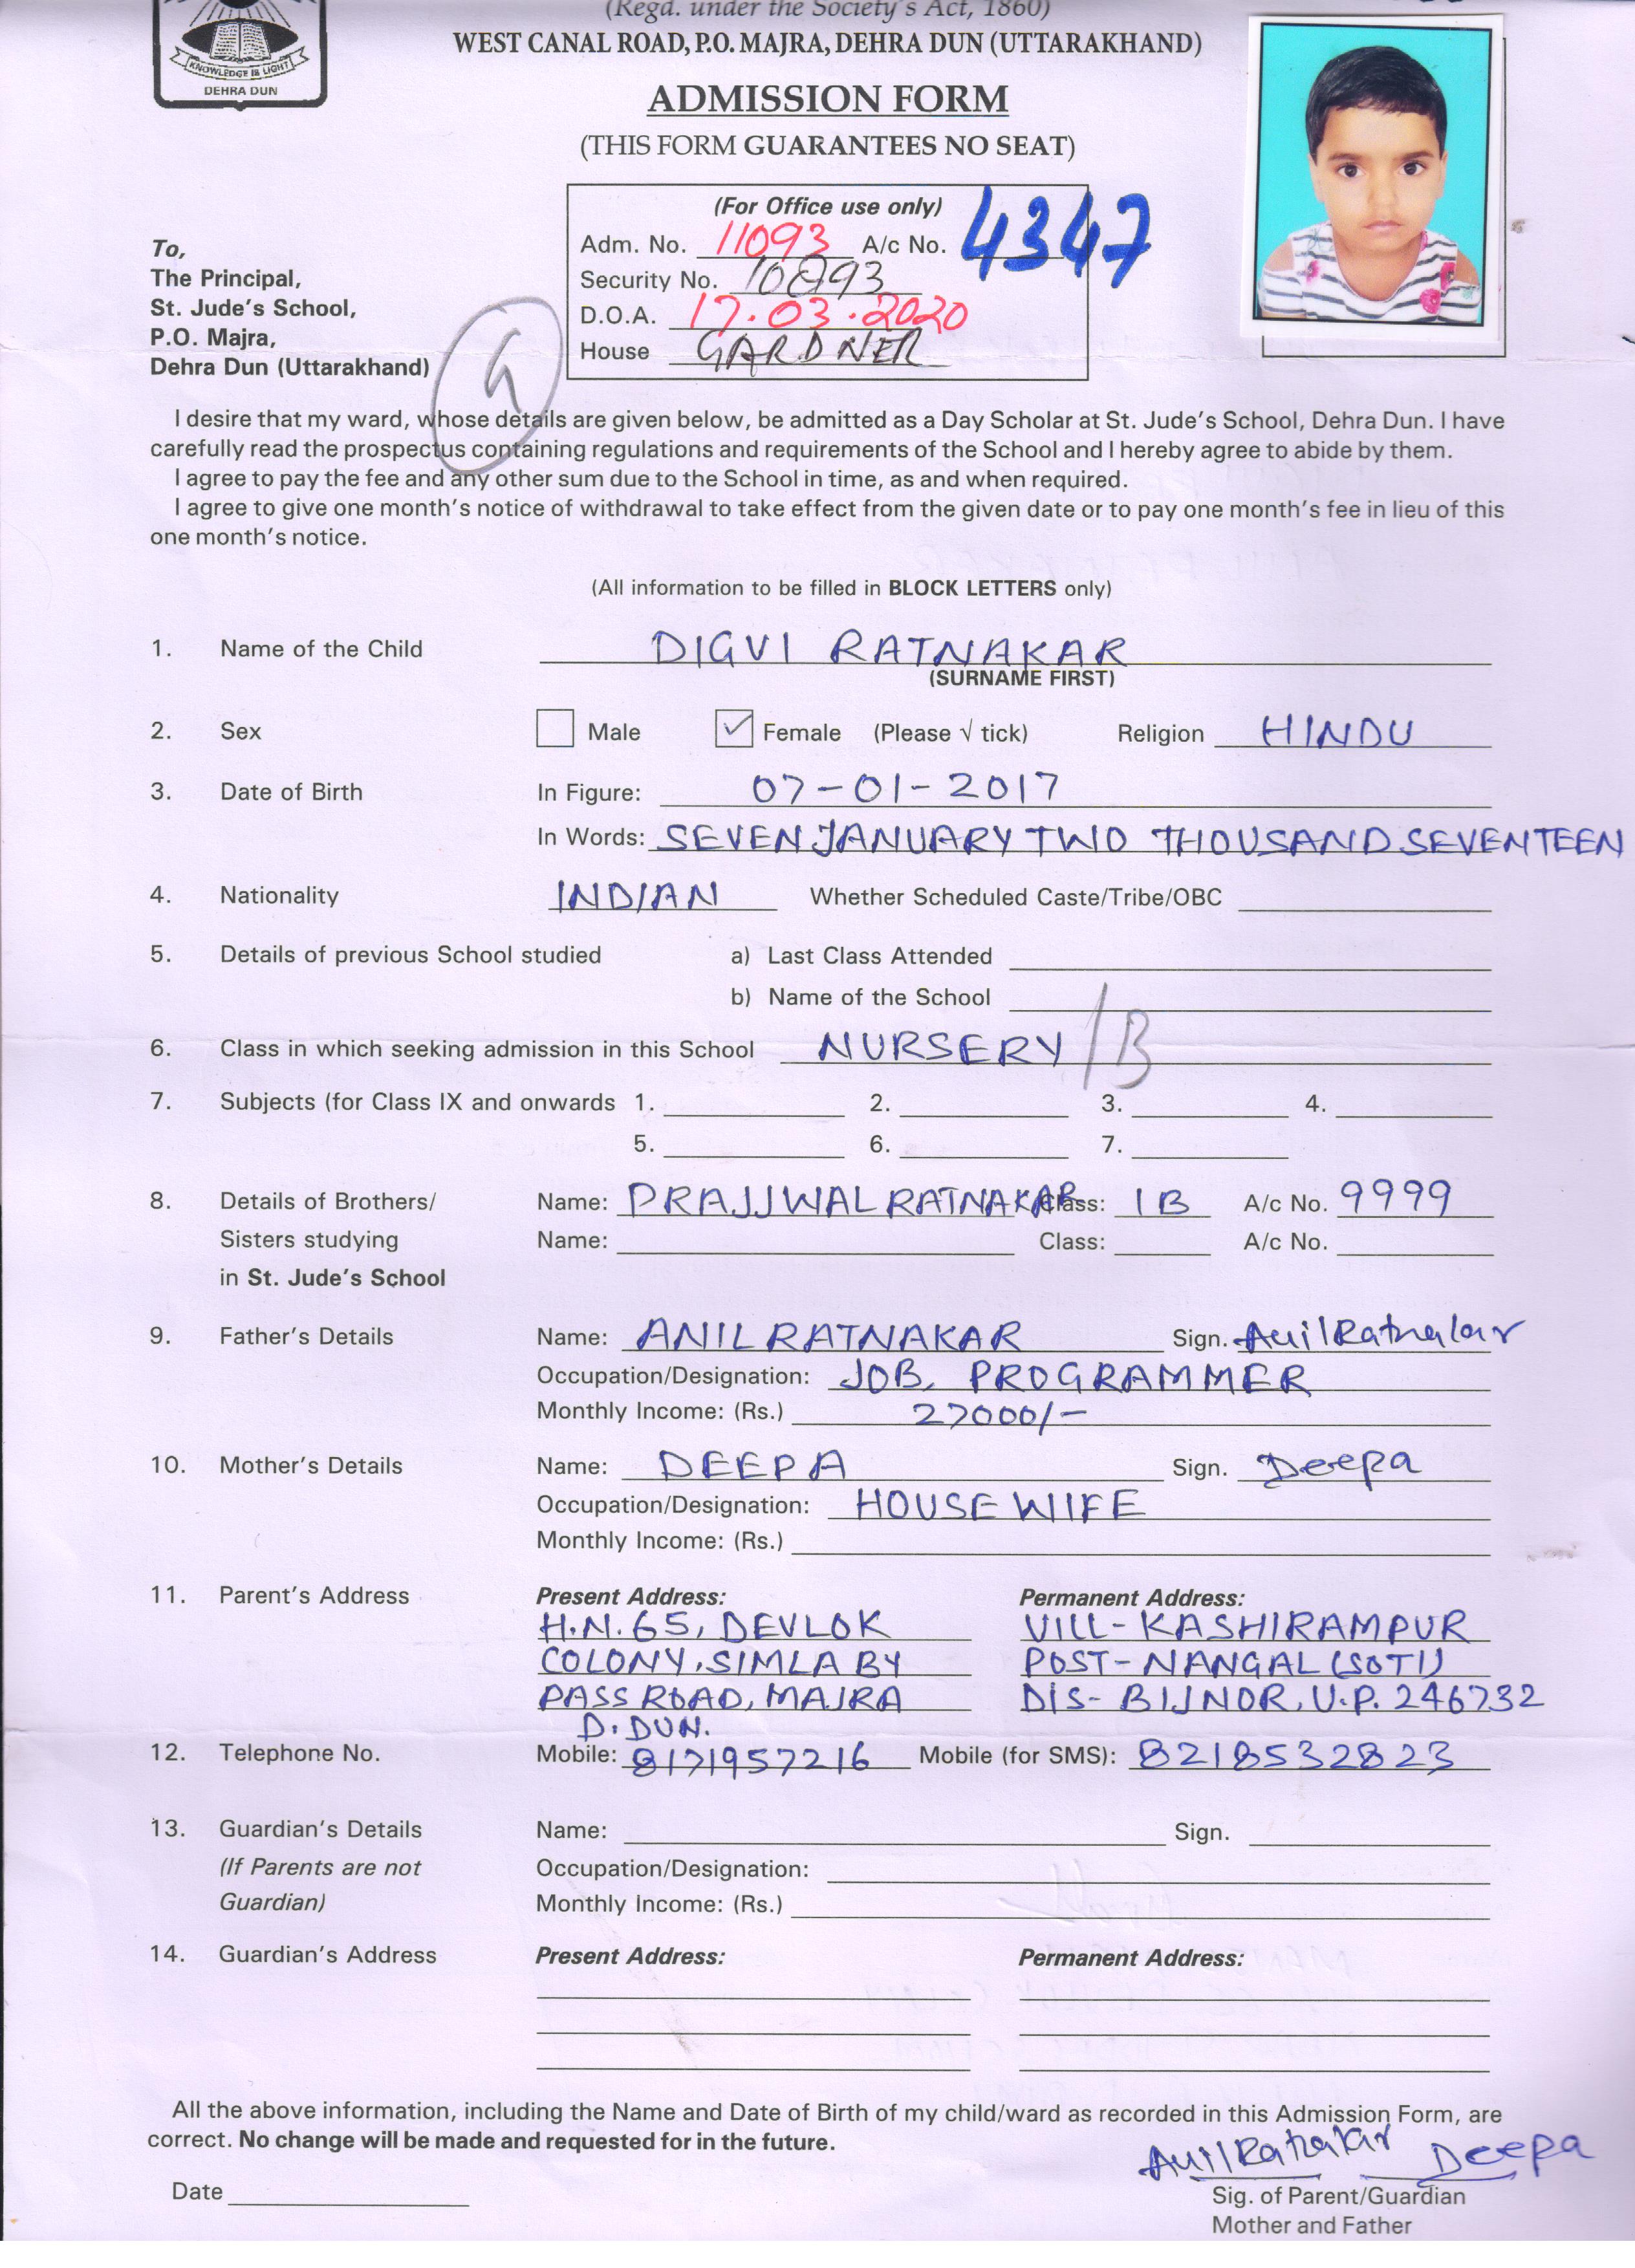 (Regd. under the Society's Act, 1860)
WEST CANAL ROAD, P.O. MAJRA, DEHRA DUN (UTTARAKHAND)
KNOWLEDGE IS LIGHT
DEHRA DUN
ADMISSION FORM
(THIS FORM GUARANTEES NO SEAT)
(For Office use only)
Adm. No. 11093 A/c No. 4347
Security No. 10893
D.O.A. 17.03.2020
House GARDNER
To,
The Principal,
St. Jude's School,
P.O. Majra,
Dehra Dun (Uttarakhand)
I desire that my ward, whose details are given below, be admitted as a Day Scholar at St. Jude's School, Dehra Dun. I have
carefully read the prospectus containing regulations and requirements of the School and I hereby agree to abide by them.
I agree to pay the fee and any other sum due to the School in time, as and when required.
I agree to give one month's notice of withdrawal to take effect from the given date or to pay one month's fee in lieu of this
one month's notice.
(All information to be filled in BLOCK LETTERS only)
1. Name of the Child DIGVI RATNAKAR
(SURNAME FIRST)
2. Sex Male Female (Please √ tick) Religion HINDU
3. Date of Birth In Figure: 07-01-2017
In Words: SEVEN JANUARY TWO THOUSAND SEVENTEEN
4. Nationality INDIAN Whether Scheduled Caste/Tribe/OBC
5. Details of previous School studied a) Last Class Attended
b) Name of the School
6. Class in which seeking admission in this School NURSERY /B
7. Subjects (for Class IX and onwards 1. 2. 3. 4.
5. 6. 7.
8. Details of Brothers/ Name: PRAJJWAL RATNAKAR Class: 1B A/c No. 9999
Sisters studying Name: Class: A/c No.
in St. Jude's School
9. Father's Details Name: ANIL RATNAKAR Sign. Anil Ratnakar
Occupation/Designation: JOB, PROGRAMMER
Monthly Income: (Rs.) 27000/-
10. Mother's Details Name: DEEPA Sign. Deepa
Occupation/Designation: HOUSE WIFE
Monthly Income: (Rs.)
11. Parent's Address Present Address: Permanent Address:
H.N. 65, DEVLOK VILL- KASHIRAMPUR
COLONY, SIMLA BY POST- NANGAL (SOTI)
PASS ROAD, MAJRA DIS- BIJNOR, U.P. 246732
D. DUN.
12. Telephone No. Mobile: 8171957216 Mobile (for SMS): 8218532823
13. Guardian's Details Name: Sign.
(If Parents are not Occupation/Designation:
Guardian) Monthly Income: (Rs.)
14. Guardian's Address Present Address: Permanent Address:
All the above information, including the Name and Date of Birth of my child/ward as recorded in this Admission Form, are
correct. No change will be made and requested for in the future.
Anil Ratnakar Deepa
Date
Sig. of Parent/Guardian
Mother and Father